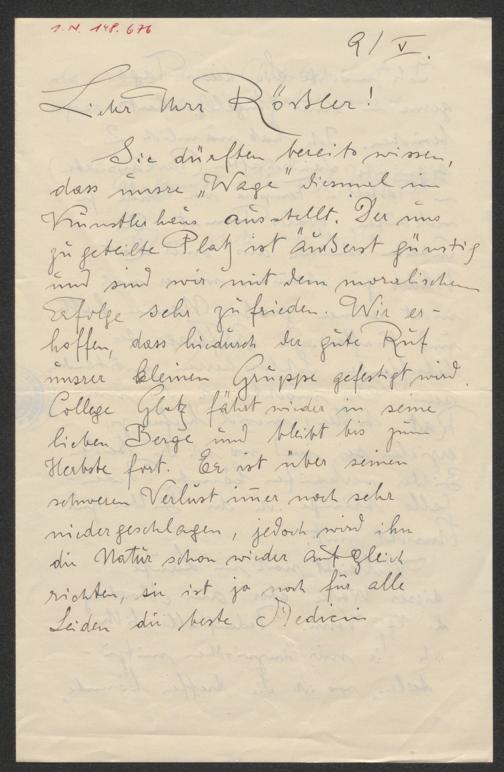 I.N. 148.676
9/V.
Lieber Herr Rössler!
Sie dürften bereits wissen,
dass unsre „Wage" diesmal im
Künstlerhaus ausstellt. Der uns
zugeteilte Platz ist äußerst günstig
und sind wir mit dem moralischen
Erfolge sehr zufrieden. Wir er-
hoffen, dass hiedurch der gute Ruf
unsrer kleinen Gruppe gefestigt wird.
College Glatz fährt wieder in seine
lieben Berge und bleibt bis zum
Herbste fort. Er ist über seinen
schweren Verlust im̅er noch sehr
niedergeschlagen, jedoch wird ihn
die Natur schon wieder
richten, sie ist ja noch für alle
Leiden die beste Medicin